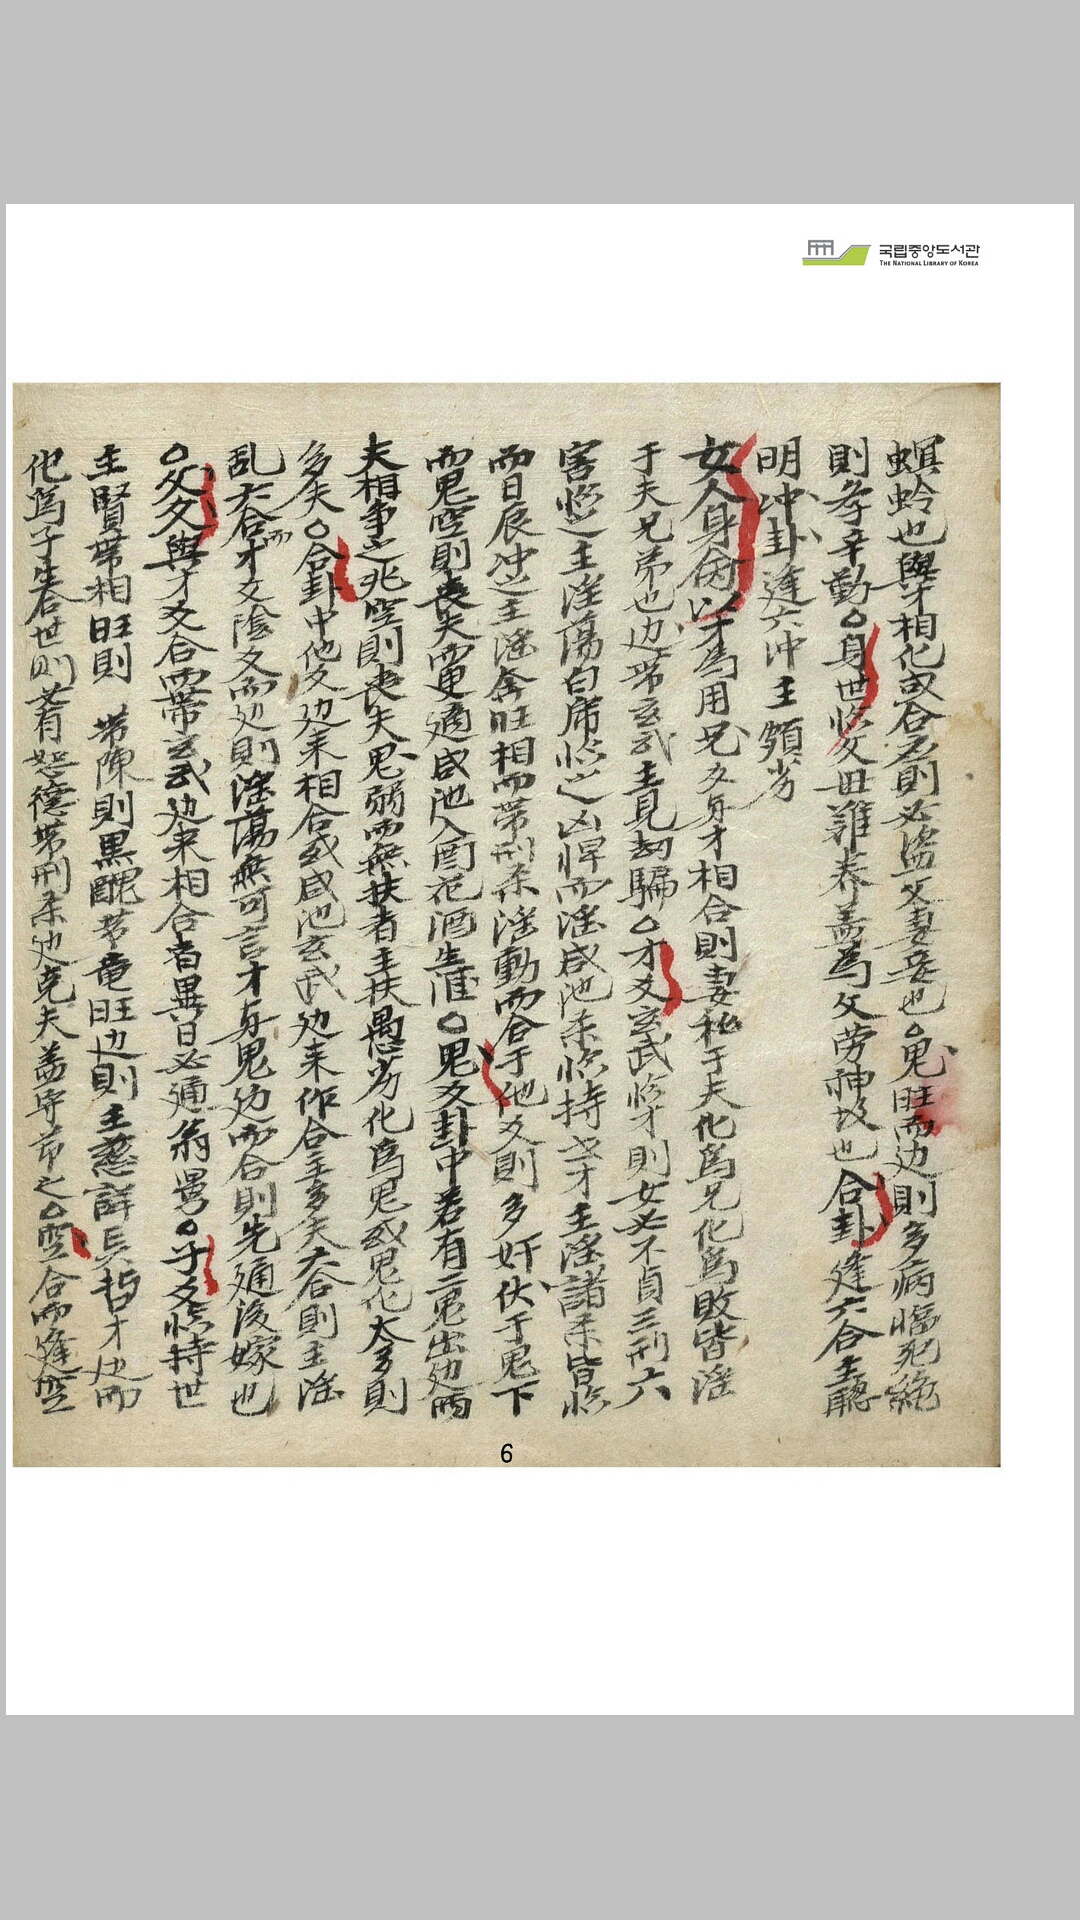 국립중앙도서관
THE NATIONAL LIBRARY OF KOREA
螟蛉也與才相化或合者則必盜父妻妾也○鬼旺而动則多病臨死絶
則孝辛勤○身世临父母難養盖爲父劳神故也合卦逢六合主聰
明冲卦逢六冲主頑劣
女人身㐫以才爲用兄爻与才相合則妻私于夫化爲兄化爲敗皆淫
于夫兄弟也边帶玄武主見刼騙○才爻玄武临才則女必不貞三刑六
害临之主淫蕩白虎临之凶悍而淫咸池杀临持世才主淫諸杀皆临
而日辰冲之主淫奔旺相而帶刑杀淫動而合于他爻則多奸伏于鬼下
而鬼空則喪夫而更適咸池入酉花酒生涯○鬼爻卦中若有二鬼出边兩
夫相争之兆空則喪夫鬼弱而無扶者主扶愚劣化爲鬼或鬼化太多則
多夫○合卦中他爻边来相合或咸池玄武边来作合主多夫六合則主淫
乱六合而才文陰文而边則淫蕩無可言才身鬼边而合則先通後嫁也
○父爻與才爻合而帶玄武边来相合者異日必通翁○子爻临持世
主賢帶相旺則 帶陳則黒醜帶竜旺边則主慈詳兵才边而
化爲子生合世則必有德帶刑杀边克夫盖守之○空合而逢空
6